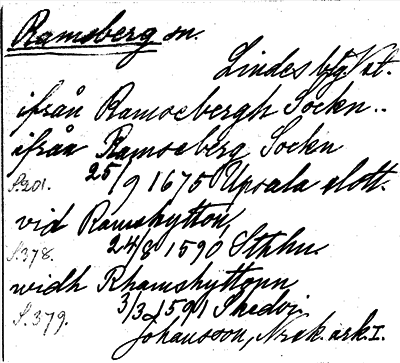 Ramsberg sn.
Lindes bg, Vst.
ifrån Ramssebergh Sockn..
ifrån Ramseberg Sockn
S.201. 25/9 1675 Upsala slott.
vid Ramshytton,
S.378. 24/8 1590 Sthlm.
widh Rhamshyttonn
S.379. 3/3 1591 Skedvi
Johansson, Norak. ark. I.